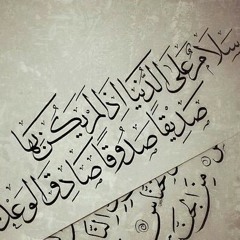 سَلَامٌ عَلَى الدُّنْيَا إِذَا لَمْ يَكُنْ بِهَا
صَدِيقًا صَدُوقًا صَادِقَ الوَعْدِ
مِنَ الجِنَّةِ